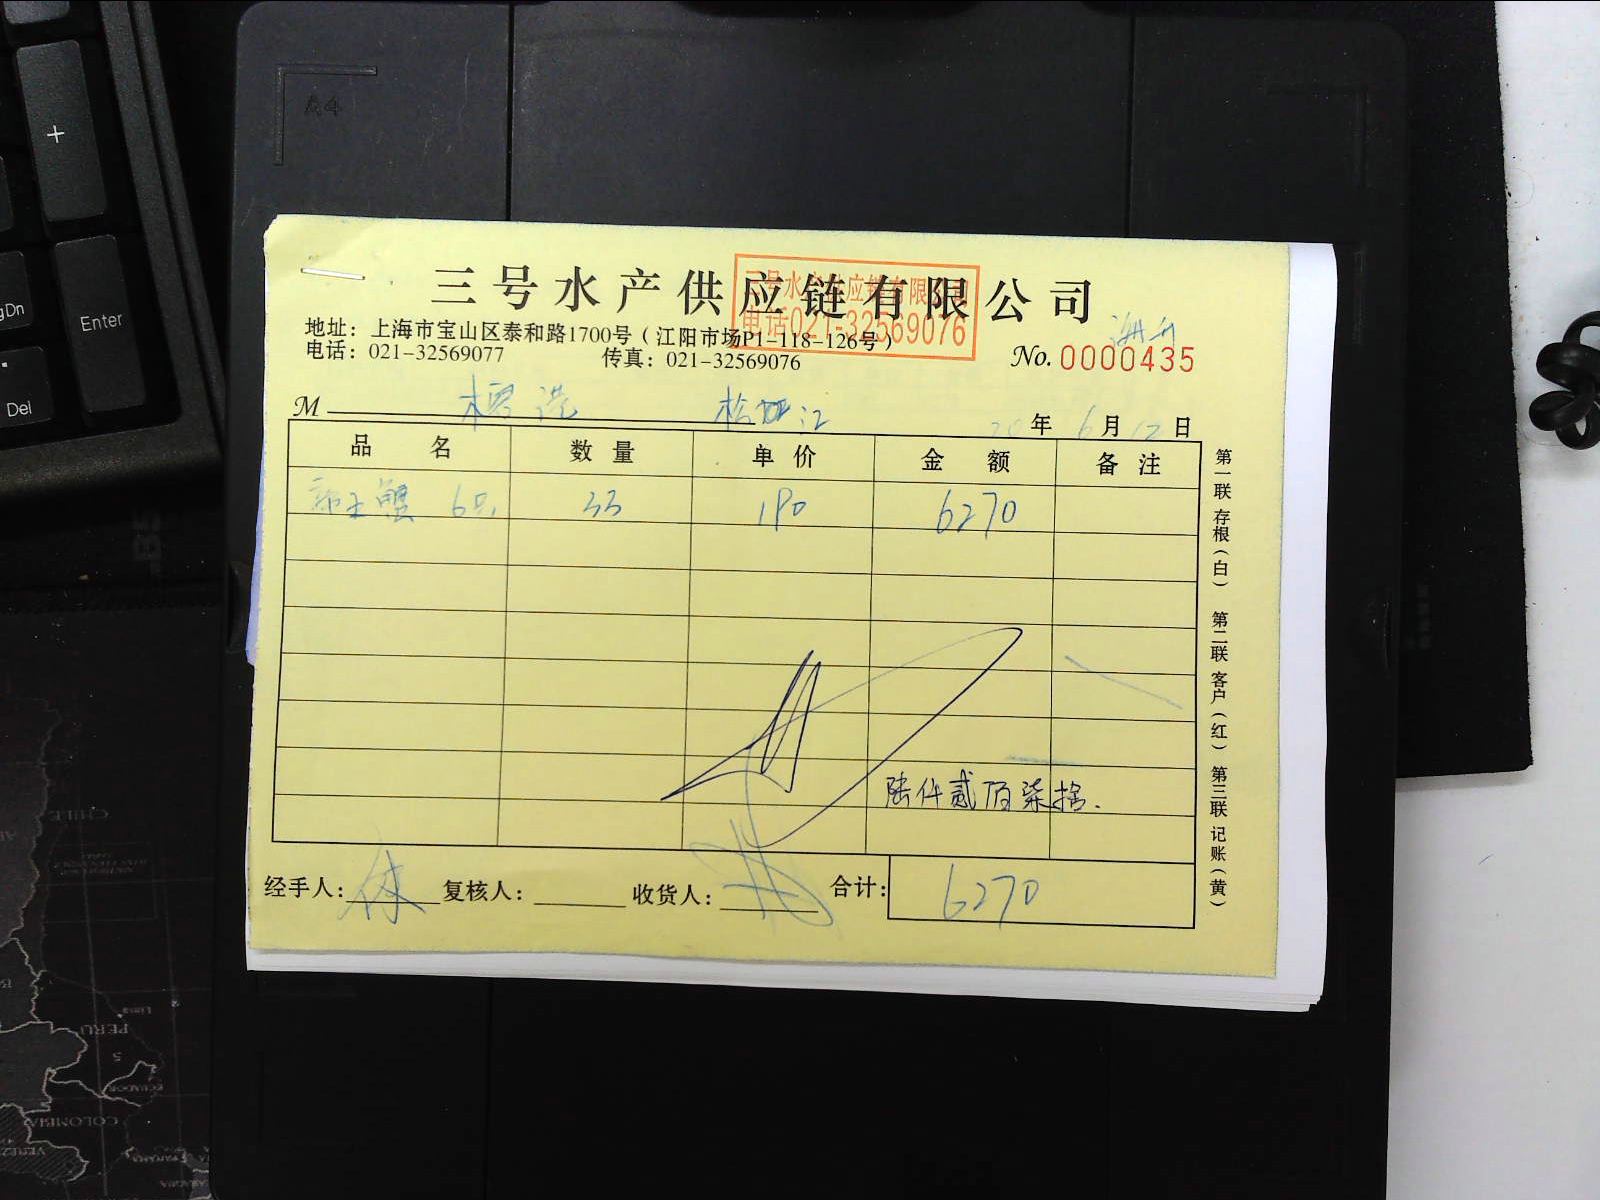 三号水产供应链有限公司
三号水产供应链有限公司
电话021-32569076
地址：上海市宝山区泰和路1700号（江阳市场P1-118-126号）
电话：021-32569077 传真：021-32569076
No. 0000435
M 松江
20 年 6 月 12 日
品 名 数 量 单 价 金 额 备 注
帝王蟹 6只 33 190 6270
陆仟贰佰柒拾.
经手人： 复核人： 收货人： 合计： 6270
第一联 存根（白） 第二联 客户（红） 第三联 记账（黄）
A4
+
gDn
Enter
Del
CHILE
PERU
Lima
ECUADOR
COLOMBIA
PANAMA